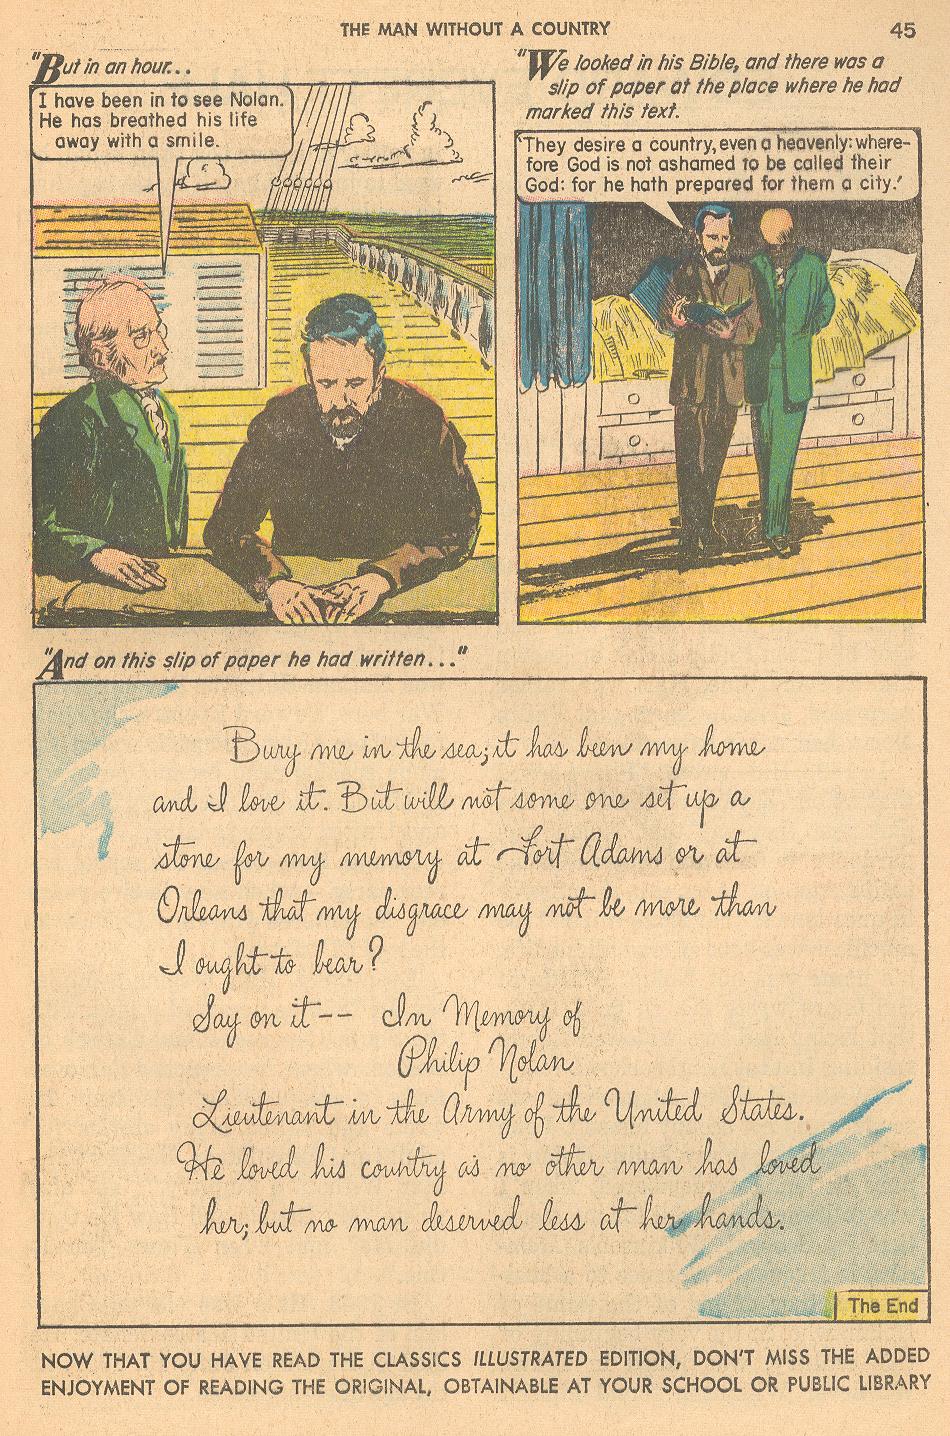 THE MAN WITHOUT A COUNTRY
45
"But in an hour...
I have been in to see Nolan.
He has breathed his life
away with a smile.
"We looked in his Bible, and there was a
slip of paper at the place where he had
marked this text.
'They desire a country, even a heavenly: where-
fore God is not ashamed to be called their
God: for he hath prepared for them a city.'
"And on this slip of paper he had written..."
Bury me in the sea; it has been my home
and I love it. But will not some one set up a
stone for my memory at Fort Adams or at
Orleans that my disgrace may not be more than
I ought to bear?
Say on it-- In Memory of
Philip Nolan
Lieutenant in the Army of the United States.
He loved his country as no other man has loved
her; but no man deserved less at her hands.
The End
NOW THAT YOU HAVE READ THE CLASSICS ILLUSTRATED EDITION, DON'T MISS THE ADDED
ENJOYMENT OF READING THE ORIGINAL, OBTAINABLE AT YOUR SCHOOL OR PUBLIC LIBRARY